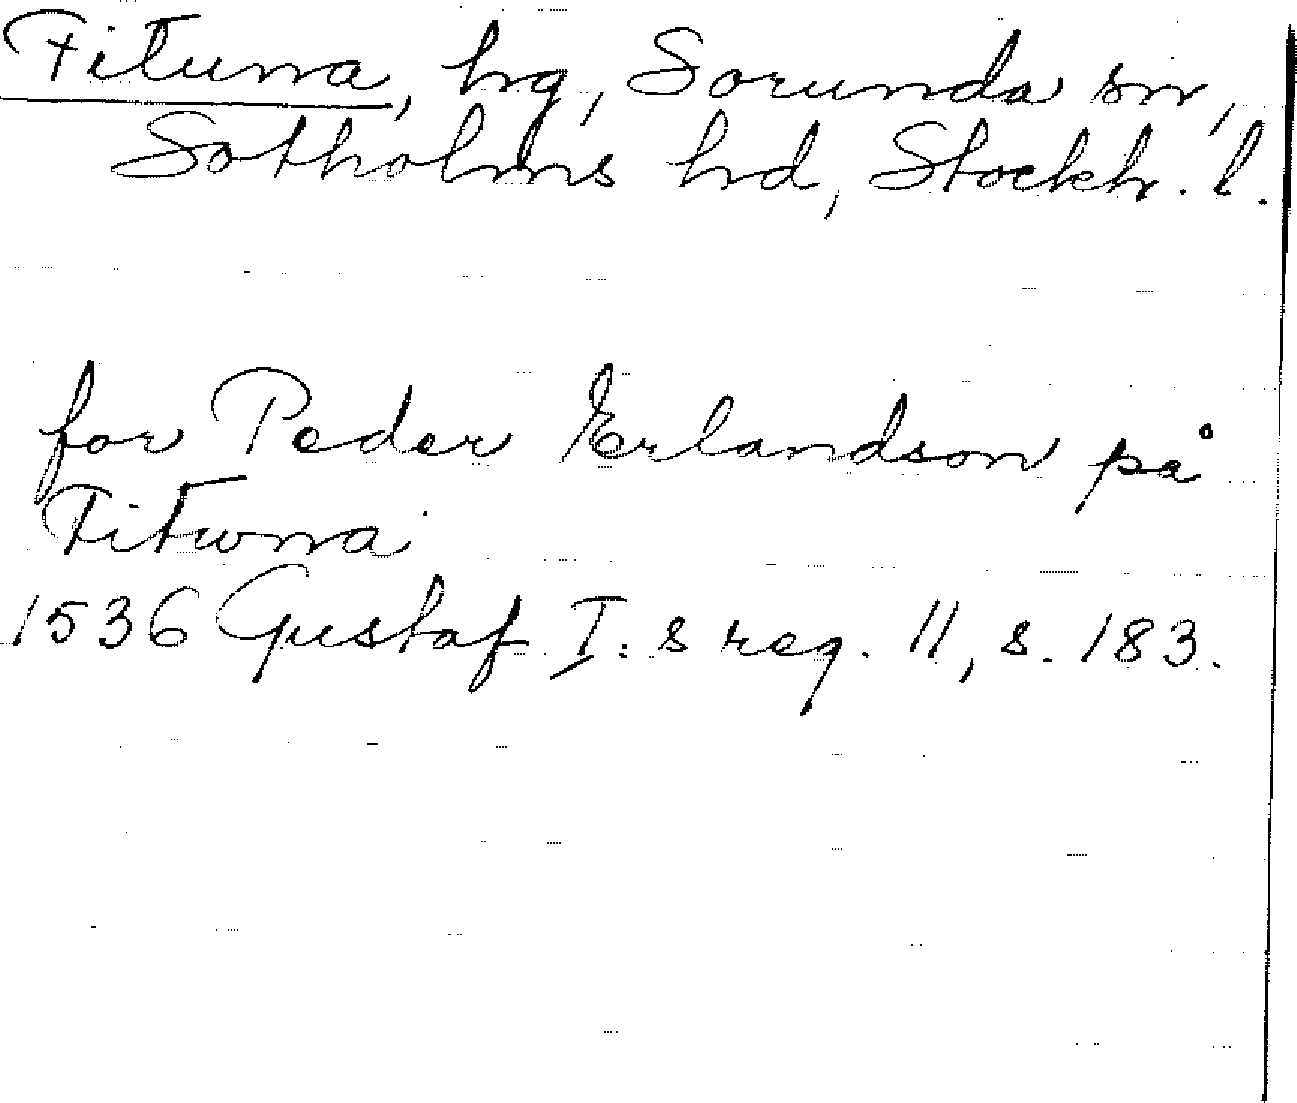 Fituna, hg, Sorunda sn,
Sotholms hd, Stockh. l.
for Peder Erlandson på
Fitwna
1536 Gustaf I:s reg. 11, s. 183.